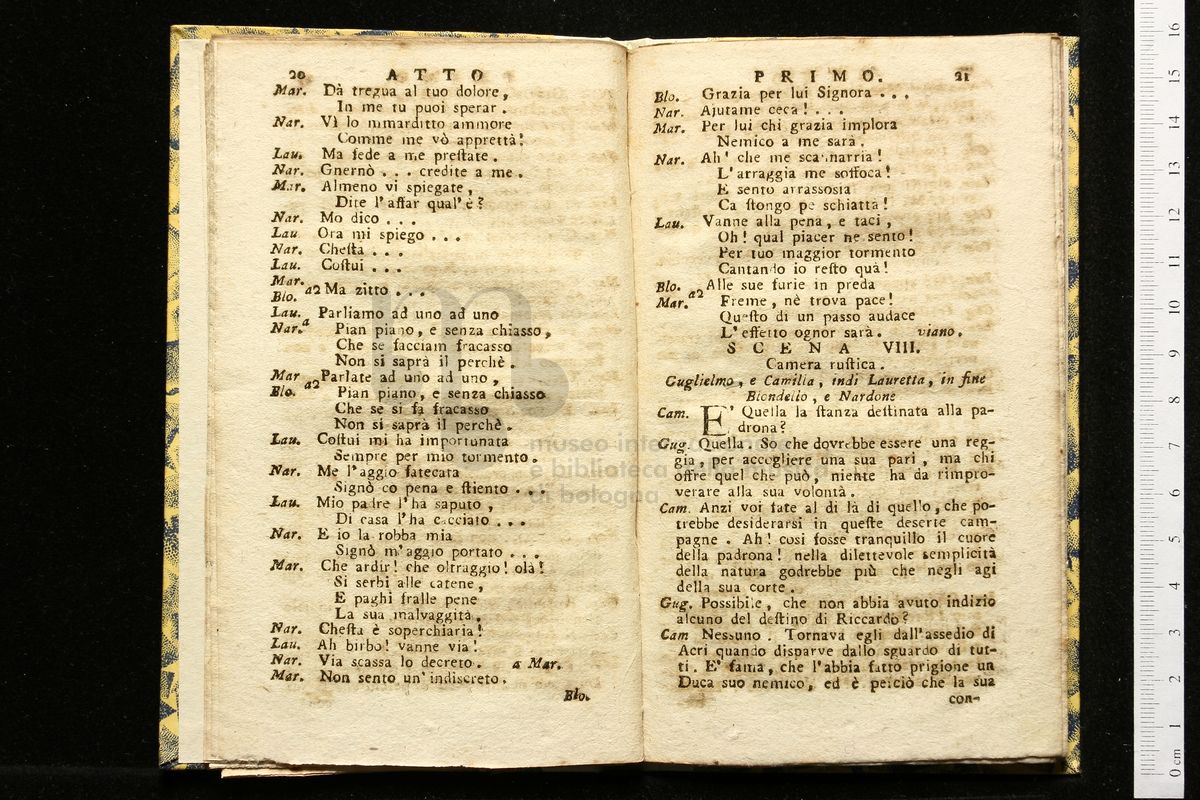 20 ATTO
Mar. Dà tregua al tuo dolore,
In me tu puoi sperar.
Nar. Vì lo mmarditto ammore
Comme me vò apprettà!
Lau. Ma fede a me preſtate.
Nar. Gnernò . . . credite a me.
Mar. Almeno vi spiegate,
Dite l'affar qual'è?
Nar. Mo dico . . .
Lau Ora mi spiego . . .
Nar. Cheſta . . .
Lau. Coſtui . . .
Mar.
Blo. a2 Ma zitto . . .
Lau. Parliamo ad uno ad uno
Nar. a Pian piano, e senza chiasso,
Che se facciam fracasso
Non si saprà il perchè.
Mar Parlate ad uno ad uno,
Blo. a2 Pian piano, e senza chiasso
Che se si fa fracasso
Non si saprà il perchè.
Lau. Coſtui mi ha importunata
Sempre per mio tormento.
Nar. Me l'aggio fatecata
Signò co pena e ſtiento . . .
Lau. Mio padre l'ha saputo,
Di casa l'ha cacciato . . .
Nar. E io la robba mia
Signò m'aggio portato . . .
Mar. Che ardir! che oltraggio! olà!
Si serbi alle catene,
E paghi fralle pene
La sua malvaggità.
Nar. Cheſta è soperchiaria!
Lau. Ah birbo! vanne via!
Nar. Via scassa lo decreto. a Mar.
Mar. Non sento un'indiscreto.
Blo.
PRIMO. 21
Blo. Grazia per lui Signora . . .
Nar. Ajutame ceca! . . .
Mar. Per lui chi grazia implora
Nemico a me sarà.
Nar. Ah! che me scannarria!
L'arraggia me soffoca!
E sento arrassosia
Ca ſtongo pe schiattà!
Lau. Vanne alla pena, e taci,
Oh! qual piacer ne sento!
Per tuo maggior tormento
Cantando io reſto quà!
Blo. Alle sue furie in preda
Mar. a2 Freme, nè trova pace!
Queſto di un passo audace
L'effetto ognor sarà. viano.
SCENA VIII.
Camera ruſtica.
Guglielmo, e Camilla, indi Lauretta, in fine
Blondello, e Nardone
Cam. E' Quella la ſtanza deſtinata alla pa-
drona?
Gug. Quella. So che dovrebbe essere una reg-
gia, per accogliere una sua pari, ma chi
offre quel che può, niente ha da rimpro-
verare alla sua volontà.
Cam. Anzi voi fate al di là di quello, che po-
trebbe desiderarsi in queſte deserte cam-
pagne. Ah! così fosse tranquillo il cuore
della padrona! nella dilettevole semplicità
della natura godrebbe più che negli agi
della sua corte.
Gug. Possibile, che non abbia avuto indizio
alcuno del deſtino di Riccardo?
Cam Nessuno. Tornava egli dall'assedio di
Acri quando disparve dallo sguardo di tut-
ti. E' fama, che l'abbia fatto prigione un
Duca suo nemico, ed è perciò che la sua
con-
museo inte
e biblioteca
di bologna